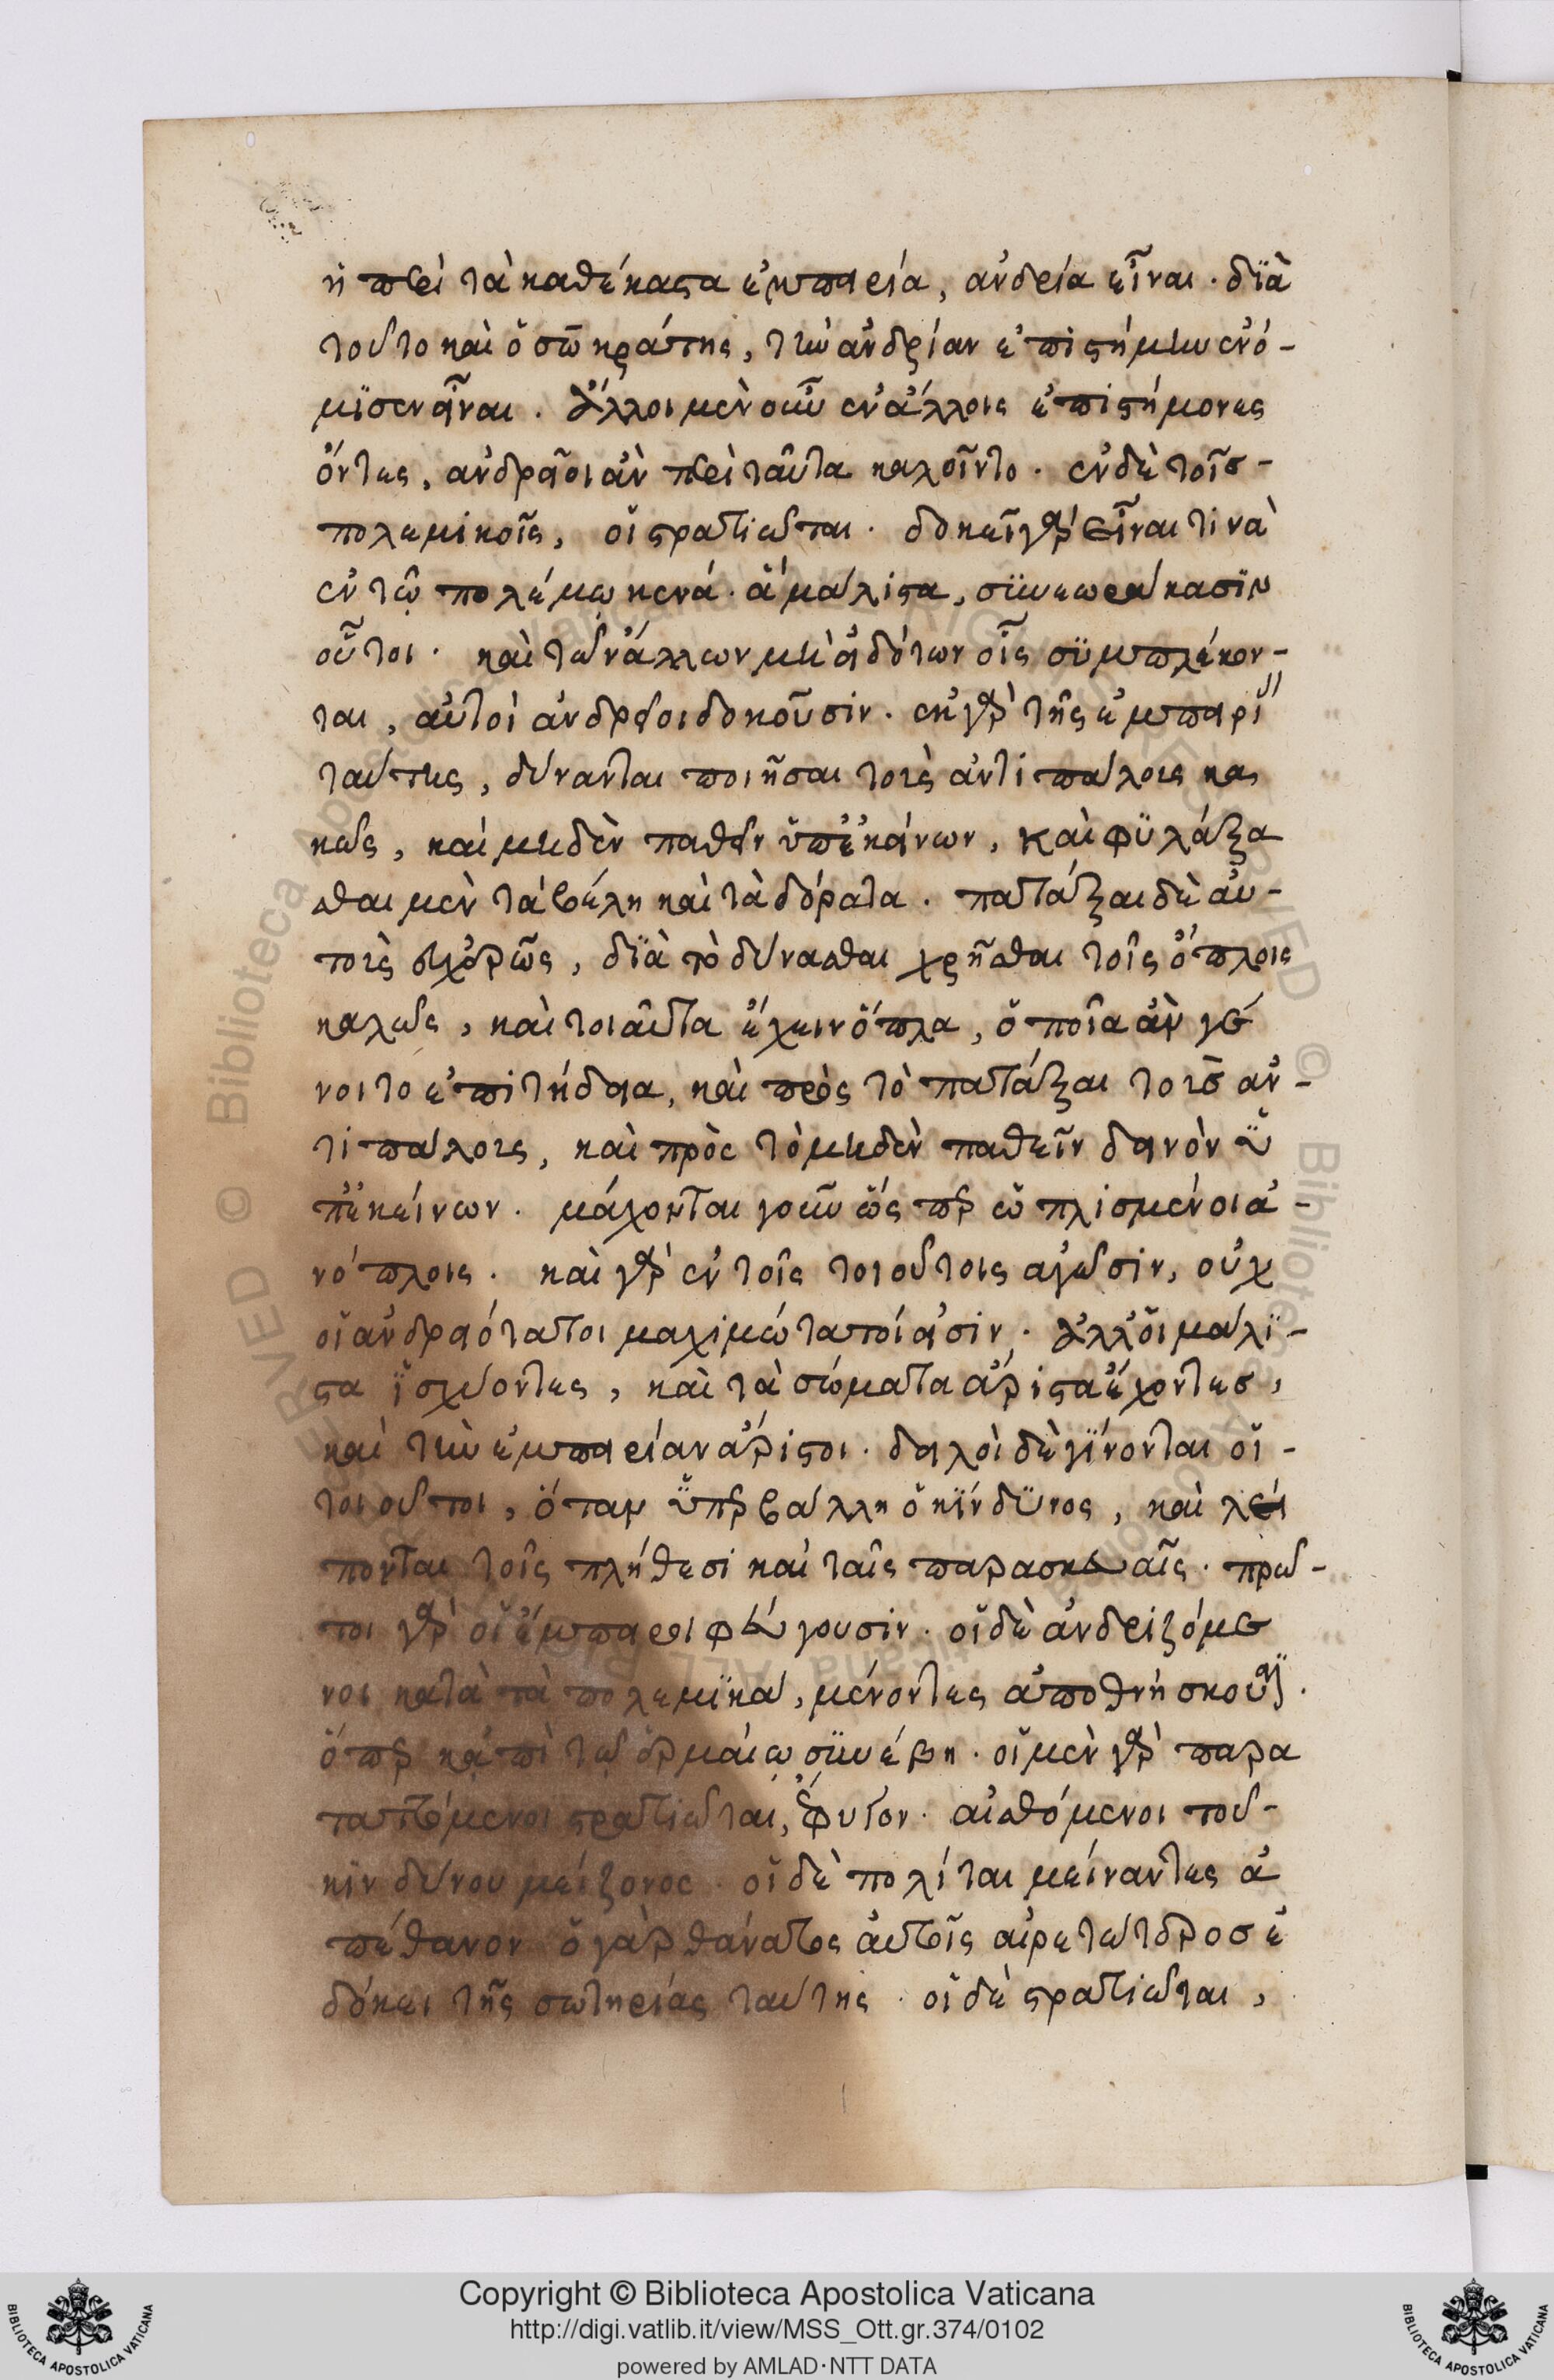 ἡ περὶ τὰ καθέκαστα ἐμπειρία, ἀνδρία εἶναι. διὰ
τοῦτο καὶ ὁ σωκράτης, τὴν ἀνδρίαν ἐπιστήμην ἐνό-
μισεν εἶναι. ἄλλοι μὲν οὖν ἐν ἄλλοις ἐπιστήμονες
ὄντες, ἀνδρεῖοι ἂν περὶ ταῦτα καλοῖντο. ἐν δὲ τοῖς-
πολεμικοῖς, οἱ στρατιῶται. δοκεῖ γὰρ εἶναι τινὰ
ἐν τῷ πολέμῳ κενά. ἃ μάλιστα, συνεωράκασιν
οὗτοι. καὶ τῶν ἄλλων μὴ εἰδότων οἷς συμπλέκον-
ται, αὐτοὶ ἀνδρεῖοι δοκοῦσιν. ἐκ γὰρ τῆς ἐμπειρί
ταύτης, δύνανται ποιῆσαι τοὺς ἀντιπάλους κα
κῶς, καὶ μηδὲν παθεῖν ὑπ' ἐκείνων, καὶ φυλάξα
σθαι μὲν τὰ βέλη καὶ τὰ δόρατα. πατάξαι δὲ αὐ-
τοὺς ἰσχυρῶς, διὰ τὸ δύνασθαι χρῆσθαι τοῖς ὅπλοις
καλῶς, καὶ τοιαῦτα ἔχειν ὅπλα, ὁποῖα ἂν γέ
νοιτο ἐπιτήδεια, καὶ πρὸς τὸ πατάξαι τοὺς ἀν-
τιπάλους, καὶ πρὸς τὸ μηδὲν παθεῖν δεινὸν ὑ
π' ἐκείνων. μάχονται γοῦν ὥσπερ ὡπλισμένοι ἀ-
νόπλοις. καὶ γὰρ ἐν τοῖς τοιούτοις ἀγῶσιν, οὐχ
οἱ ἀνδρειότατοι μαχιμώτατοί εἰσιν. ἀλλ' οἱ μάλι-
στα ἰσχύοντες, καὶ τὰ σώματα ἄριστα ἔχοντες,
καὶ τὴν ἐμπειρίαν ἄριστοι. δειλοὶ δὲ γίνονται οἱ-
τοιοῦτοι, ὅταν ὑπερβάλλη ὁ κίνδυνος, καὶ λεί
πονται τοῖς πλήθεσι καὶ ταῖς παρασκευαῖς. πρῶ-
τοι γὰρ οἱ ἔμπειροι φεύγουσιν. οἱ δὲ ἀνδριζόμε
νοι κατὰ τὰ πολεμικά, μένοντες ἀποθνήσκουσι.
ὅπερ κἀπὶ τῷ ἑρμαίῳ συνέβη. οἱ μὲν γὰρ παρα
ταττόμενοι στρατιῶται, ἔφυγον. αἰσθόμενοι τοῦ-
κινδύνου μείζονος. οἱ δὲ πολίται μείναντες ἀ
πέθανον ὁ γὰρ θάνατος αὐτοῖς αἱρετώτερος ἐ
δόκει τῆς σωτηρίας ταύτης. οἱ δὲ στρατιῶται,
Copyright © Biblioteca Apostolica Vaticana
http://digi.vatlib.it/view/MSS_Ott.gr.374/0102
powered by AMLAD·NTT DATA